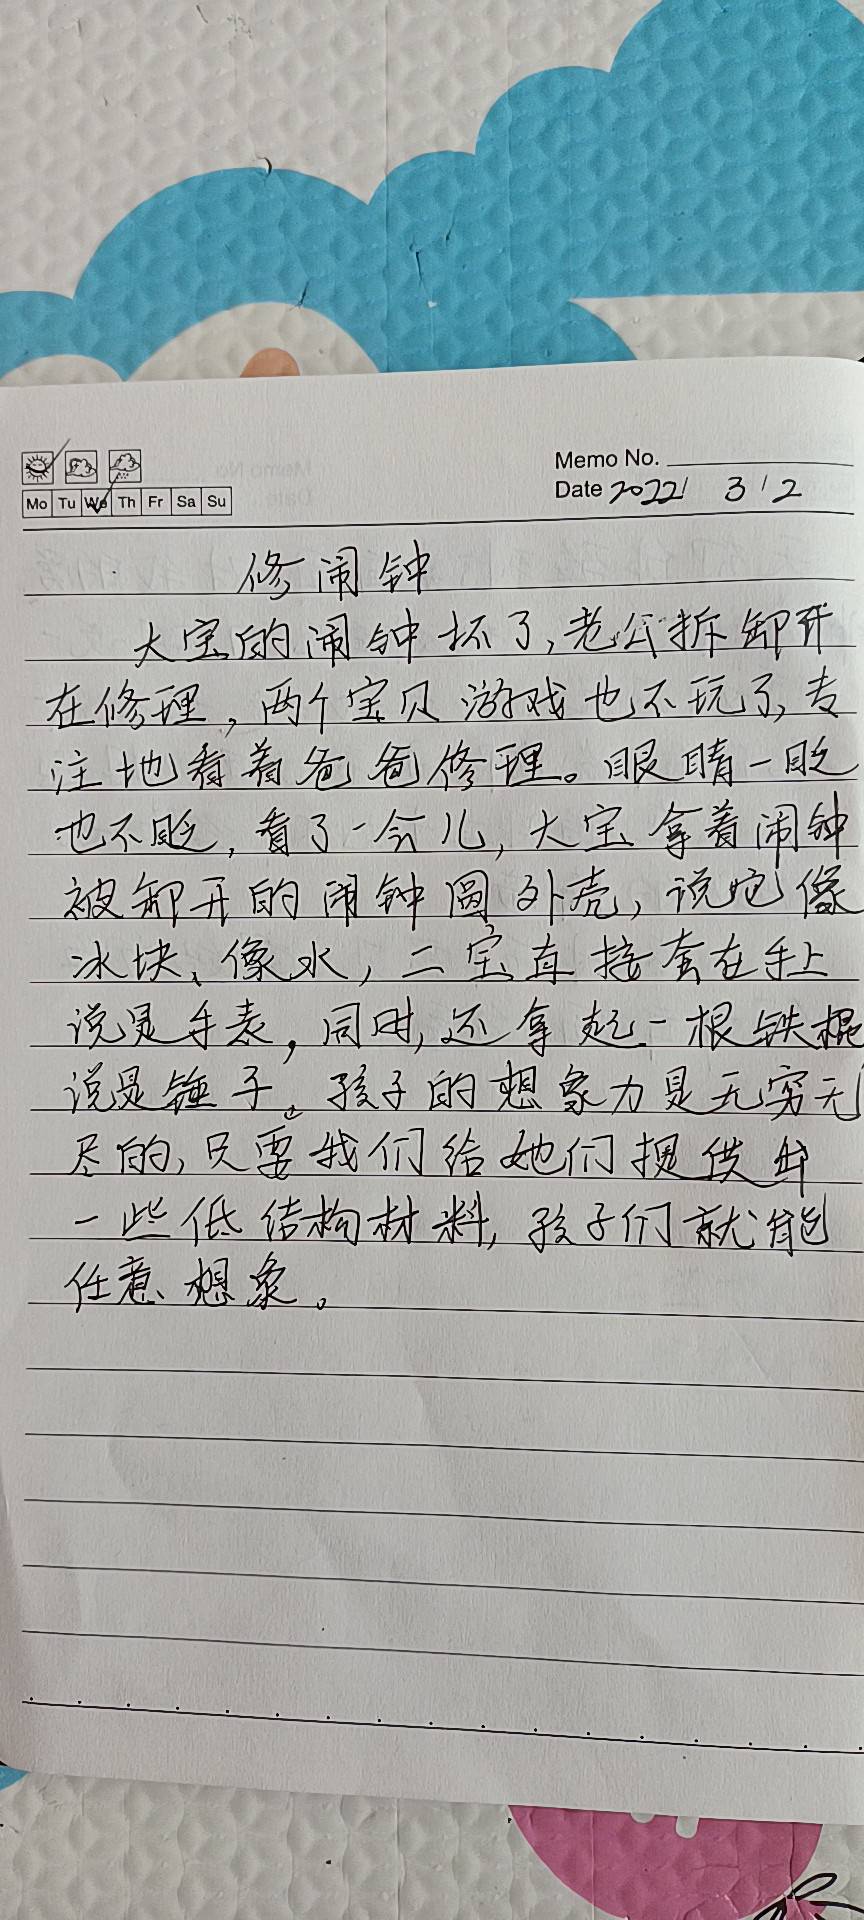 Memo No.
Mo Tu We Th Fr Sa Su
Date 2022/ 3 / 2
修闹钟
大宝的闹钟坏了,老公拆卸开
在修理,两个宝贝游戏也不玩了,专
注地看着爸爸修理。眼睛一眨
也不眨,看了一会儿,大宝拿着闹钟
被卸开的闹钟圆外壳,说它像
冰块、像水,二宝直接套在手上
说是手表,同时,还拿起一根铁棍
说是锤子。孩子的想象力是无穷无
尽的,只要我们给她们提供出
一些低结构材料,孩子们就能
任意想象。